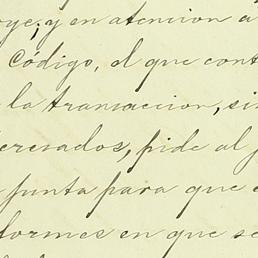 oye; y en atencion a
Codigo, el que cont
la transaccion, sin
eresados, pide al j
junta para que
formes en que se